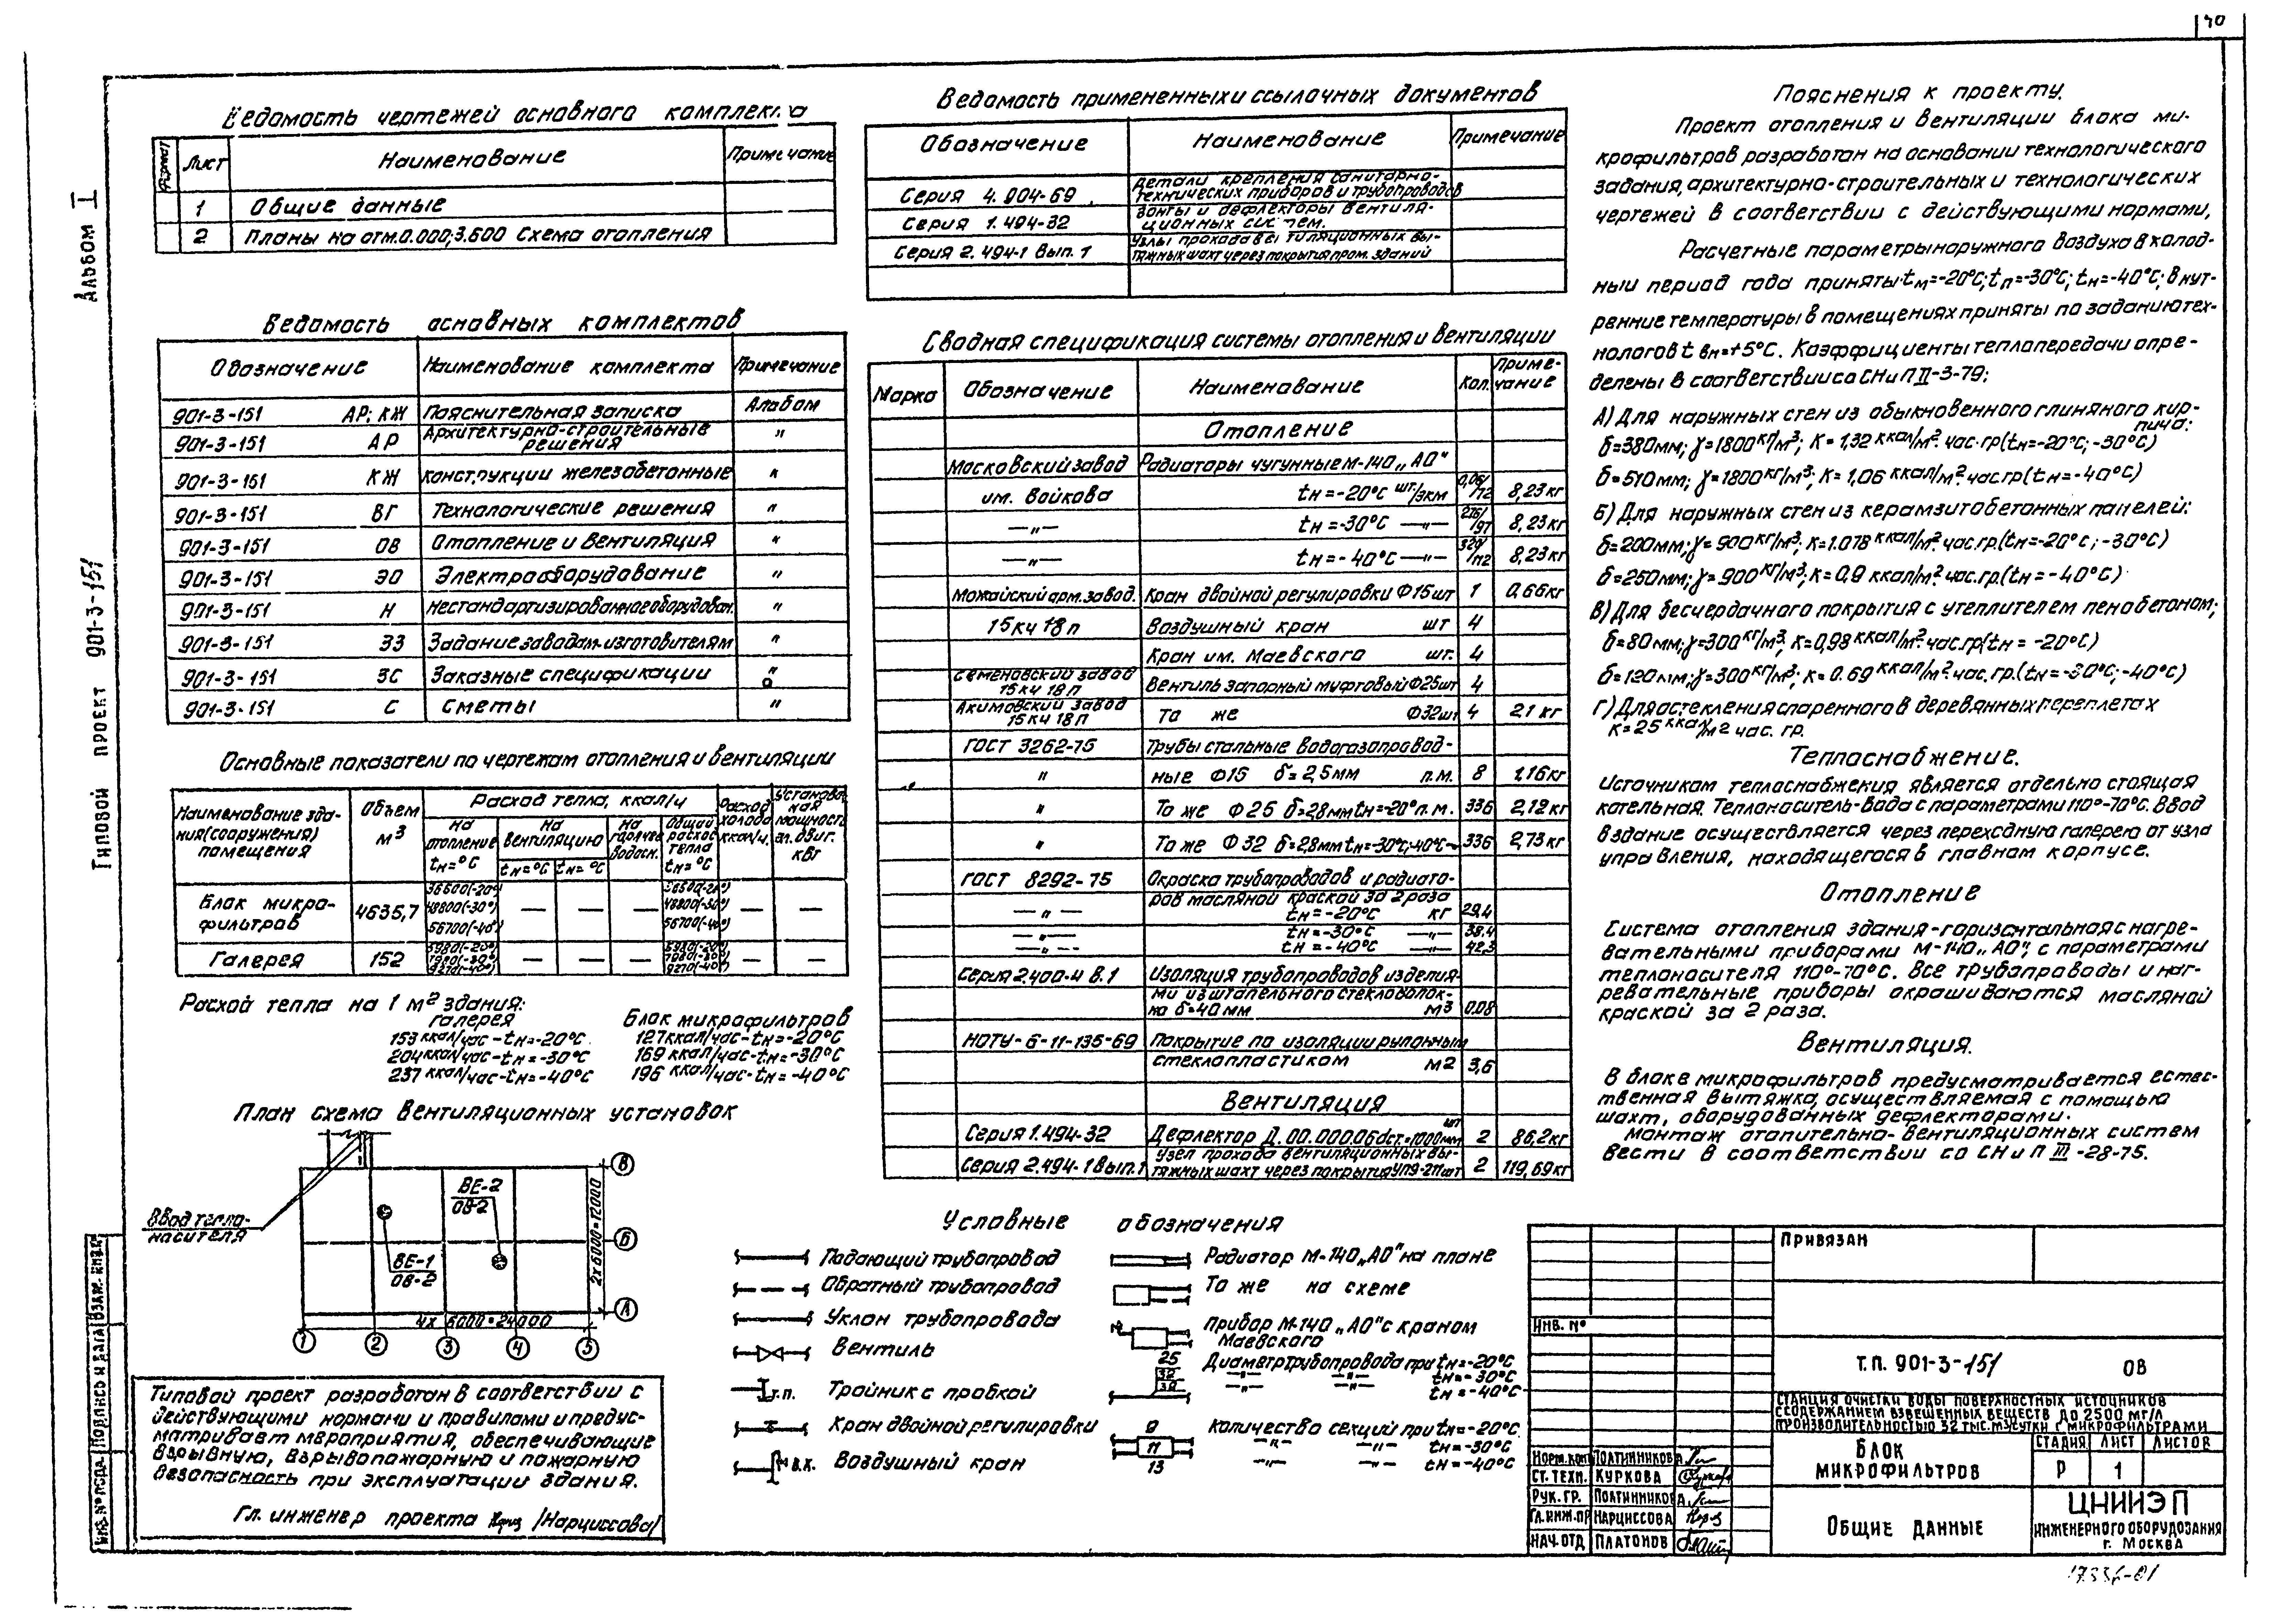 40
Альбом I
Типовой проект 901-3-151
Ведомость чертежей основного комплекта
Формат Лист Наименование Примечание
1 Общие данные
2 Планы на отм. 0.000; 3.600 Схема отопления
Ведомость основных комплектов
Обозначение Наименование комплекта Примечание
901-3-151 АР; КЖ Пояснительная записка Альбом
901-3-151 АР Архитектурно-строительные решения "
901-3-151 КЖ Конструкции железобетонные "
901-3-151 ВГ Технологические решения "
901-3-151 ОВ Отопление и вентиляция "
901-3-151 ЭО Электрооборудование "
901-3-151 Н Нестандартизированное оборудован. "
901-3-151 ЗЗ Задание заводам-изготовителям "
901-3-151 ЗС Заказные спецификации "
901-3-151 С Сметы "
Основные показатели по чертежам отопления и вентиляции
Наименование здания (сооружения) помещения
Объем м3
Расход тепла, ккал/ч
На отопление tн=°C
На вентиляцию
tн=°C tн=°C
На горячее водосн.
Общий расход тепла tн=°C
Расход холода ккал/ч.
Установочная мощность эл. двиг. кВт
Блок микрофильтров 4635,7 36600(-20°) 48800(-30°) 56700(-40°) — — — 36600(-20°) 48800(-30°) 56700(-40°) — —
Галерея 152 5980(-20°) 7980(-30°) 9270(-40°) — — — 5980(-20°) 7980(-30°) 9270(-40°) — —
Расход тепла на 1 м2 здания:
галерея Блок микрофильтров
153 ккал/час - tн=-20°C 127 ккал/час - tн=-20°C
204 ккал/час - tн=-30°C 169 ккал/час - tн=-30°C
237 ккал/час - tн=-40°C 196 ккал/час - tн=-40°C
План схема вентиляционных установок
Ввод тепло-
носителя
ВЕ-1
ОВ-2
ВЕ-2
ОВ-2
В
Б
А
2х6000=12000
4х6000=24000
1 2 3 4 5
Типовой проект разработан в соответствии с
действующими нормами и правилами и предус-
матривает мероприятия, обеспечивающие
взрывную, взрывопожарную и пожарную
безопасность при эксплуатации здания.
Гл. инженер проекта /Нарциссова/
Ведомость примененных и ссылочных документов
Обозначение Наименование Примечание
Серия 4.904-69 Детали крепления санитарно-
технических приборов и трубопроводов
Серия 1.494-32 Зонты и дефлекторы вентиля-
ционных систем.
Серия 2.494-1 вып. 1 Узлы прохода вентиляционных вы-
тяжных шахт через покрытия пром. зданий
Сводная спецификация системы отопления и вентиляции
Марка Обозначение Наименование Кол. Приме-чание
Отопление
Московский завод Радиаторы чугунные М-140 „АО"
им. Войкова tн=-20°C шт/экм /72 8,23кг
—"— tн=-30°C —"— /97 8,23кг
—"— tн=-40°C —"— /112 8,23кг
Можайский арм. завод. Кран двойной регулировки Ф15 шт 1 0,66кг
15кч 18п Воздушный кран шт 4
Кран им. Маевского шт. 4
Семеновский завод 15кч 18п Вентиль запорный муфтовый Ф25 шт 4
Акимовский завод 15кч 18п То же Ф32 шт 4 2.1 кг
ГОСТ 3262-75 Трубы стальные водогазопровод-
" ные Ф15 б=2,5мм п.м. 8 1.16кг
" То же Ф25 б=2.8мм tн=-20° п.м. 336 2,12кг
" То же Ф32 б=2.8мм tн=-30°С;-40°С -"- 336 2,73кг
ГОСТ 8292-75 Окраска трубопроводов и радиато-
ров масляной краской за 2 раза
—"— tн=-20°C кг 29.4
—"— tн=-30°C —"— 38.4
—"— tн=-40°C —"— 42,3
Серия 2.400-4 в.1 Изоляция трубопроводов изделия-
ми из штапельного стекловолок-
на б=40мм м3 0.08
НОТУ-6-11-135-69 Покрытие по изоляции рулонным
стеклопластиком м2 3,6
Вентиляция
Серия 1.494-32 Дефлектор Д.00.000.06 dст.=1000мм шт 2 86.2кг
Серия 2.494-1 вып.1 Узел прохода вентиляционных вы-
тяжных шахт через покрытия УП9-21 шт 2 119,69кг
Условные обозначения
Подающий трубопровод
Обратный трубопровод
Уклон трубопровода
Вентиль
т.п. Тройник с пробкой
Кран двойной регулировки
в.к. Воздушный кран
Радиатор М-140 „АО" на плане
То же на схеме
Прибор М-140 „АО" с краном
Маевского
25 Диаметр трубопровода при tн=-20°C
32 —"— —"— tн=-30°C
—"— —"— tн=-40°C
9 Количество секций при tн=-20°C
11 —"— —"— tн=-30°C
13 —"— —"— tн=-40°C
Пояснения к проекту.
Проект отопления и вентиляции блока ми-
крофильтров разработан на основании технологического
задания, архитектурно-строительных и технологических
чертежей в соответствии с действующими нормами,
Расчетные параметры наружного воздуха в холод-
ный период года приняты: tм=-20°C; tп=-30°C; tн=-40°C; внут-
ренние температуры в помещениях приняты по заданию тех-
нологов t вн=+5°C. Коэффициенты теплопередачи опре-
делены в соответствии со СНиП II-3-79;
А) Для наружных стен из обыкновенного глиняного кир-
пича:
б=380мм; γ=1800кг/м3; К=1,32 ккал/м2.час.гр(tн=-20°C; -30°C)
б=510мм; γ=1800кг/м3; К=1,06 ккал/м2.час.гр(tн=-40°C)
Б) Для наружных стен из керамзитобетонных панелей:
б=200мм; γ=900кг/м3; К=1.078 ккал/м2.час.гр.(tн=-20°C; -30°C)
б=250мм; γ=900кг/м3; К=0,9 ккал/м2.час.гр.(tн=-40°C)
В) Для бесчердачного покрытия с утеплителем пенобетоном;
б=80мм; γ=300кг/м3, К=0,98 ккал/м2.час.гр(tн=-20°C)
б=120мм; γ=300кг/м3; К=0.69 ккал/м2.час.гр.(tн=-30°C; -40°C)
Г) Для остекления спаренного в деревянных переплетах
К=25 ккал/м2 час. гр.
Теплоснабжение.
Источником теплоснабжения является отдельно стоящая
котельная. Теплоноситель-вода с параметрами 110°-70°C. Ввод
в здание осуществляется через переходную галерею от узла
управления, находящегося в главном корпусе.
Отопление
Система отопления здания-горизонтальная с нагре-
вательными приборами М-140 „АО", с параметрами
теплоносителя 110°-70°C. Все трубопроводы и наг-
ревательные приборы окрашиваются масляной
краской за 2 раза.
Вентиляция.
В блоке микрофильтров предусматривается естес-
твенная вытяжка, осуществляемая с помощью
шахт, оборудованных дефлекторами.
Монтаж отопительно-вентиляционных систем
вести в соответствии со СНиП III-28-75.
Привязан
Инв. №
Т.П. 901-3-151 ОВ
Станция очистки воды поверхностных источников
с содержанием взвешенных веществ до 2500 мг/л
производительностью 32 тыс. м3/сутки с микрофильтрами
Блок
микрофильтров
Стадия Лист Листов
Р 1
Общие данные
ЦНИИЭП
инженерного оборудования
г. Москва
Норм. кон Полтинникова
Ст. техн. Куркова
Рук. гр. Полтинникова
Гл. инж. пр Нарциссова
Нач. отд Платонов
Инв. № подл. Подпись и дата Взам. инв. №
17336-01